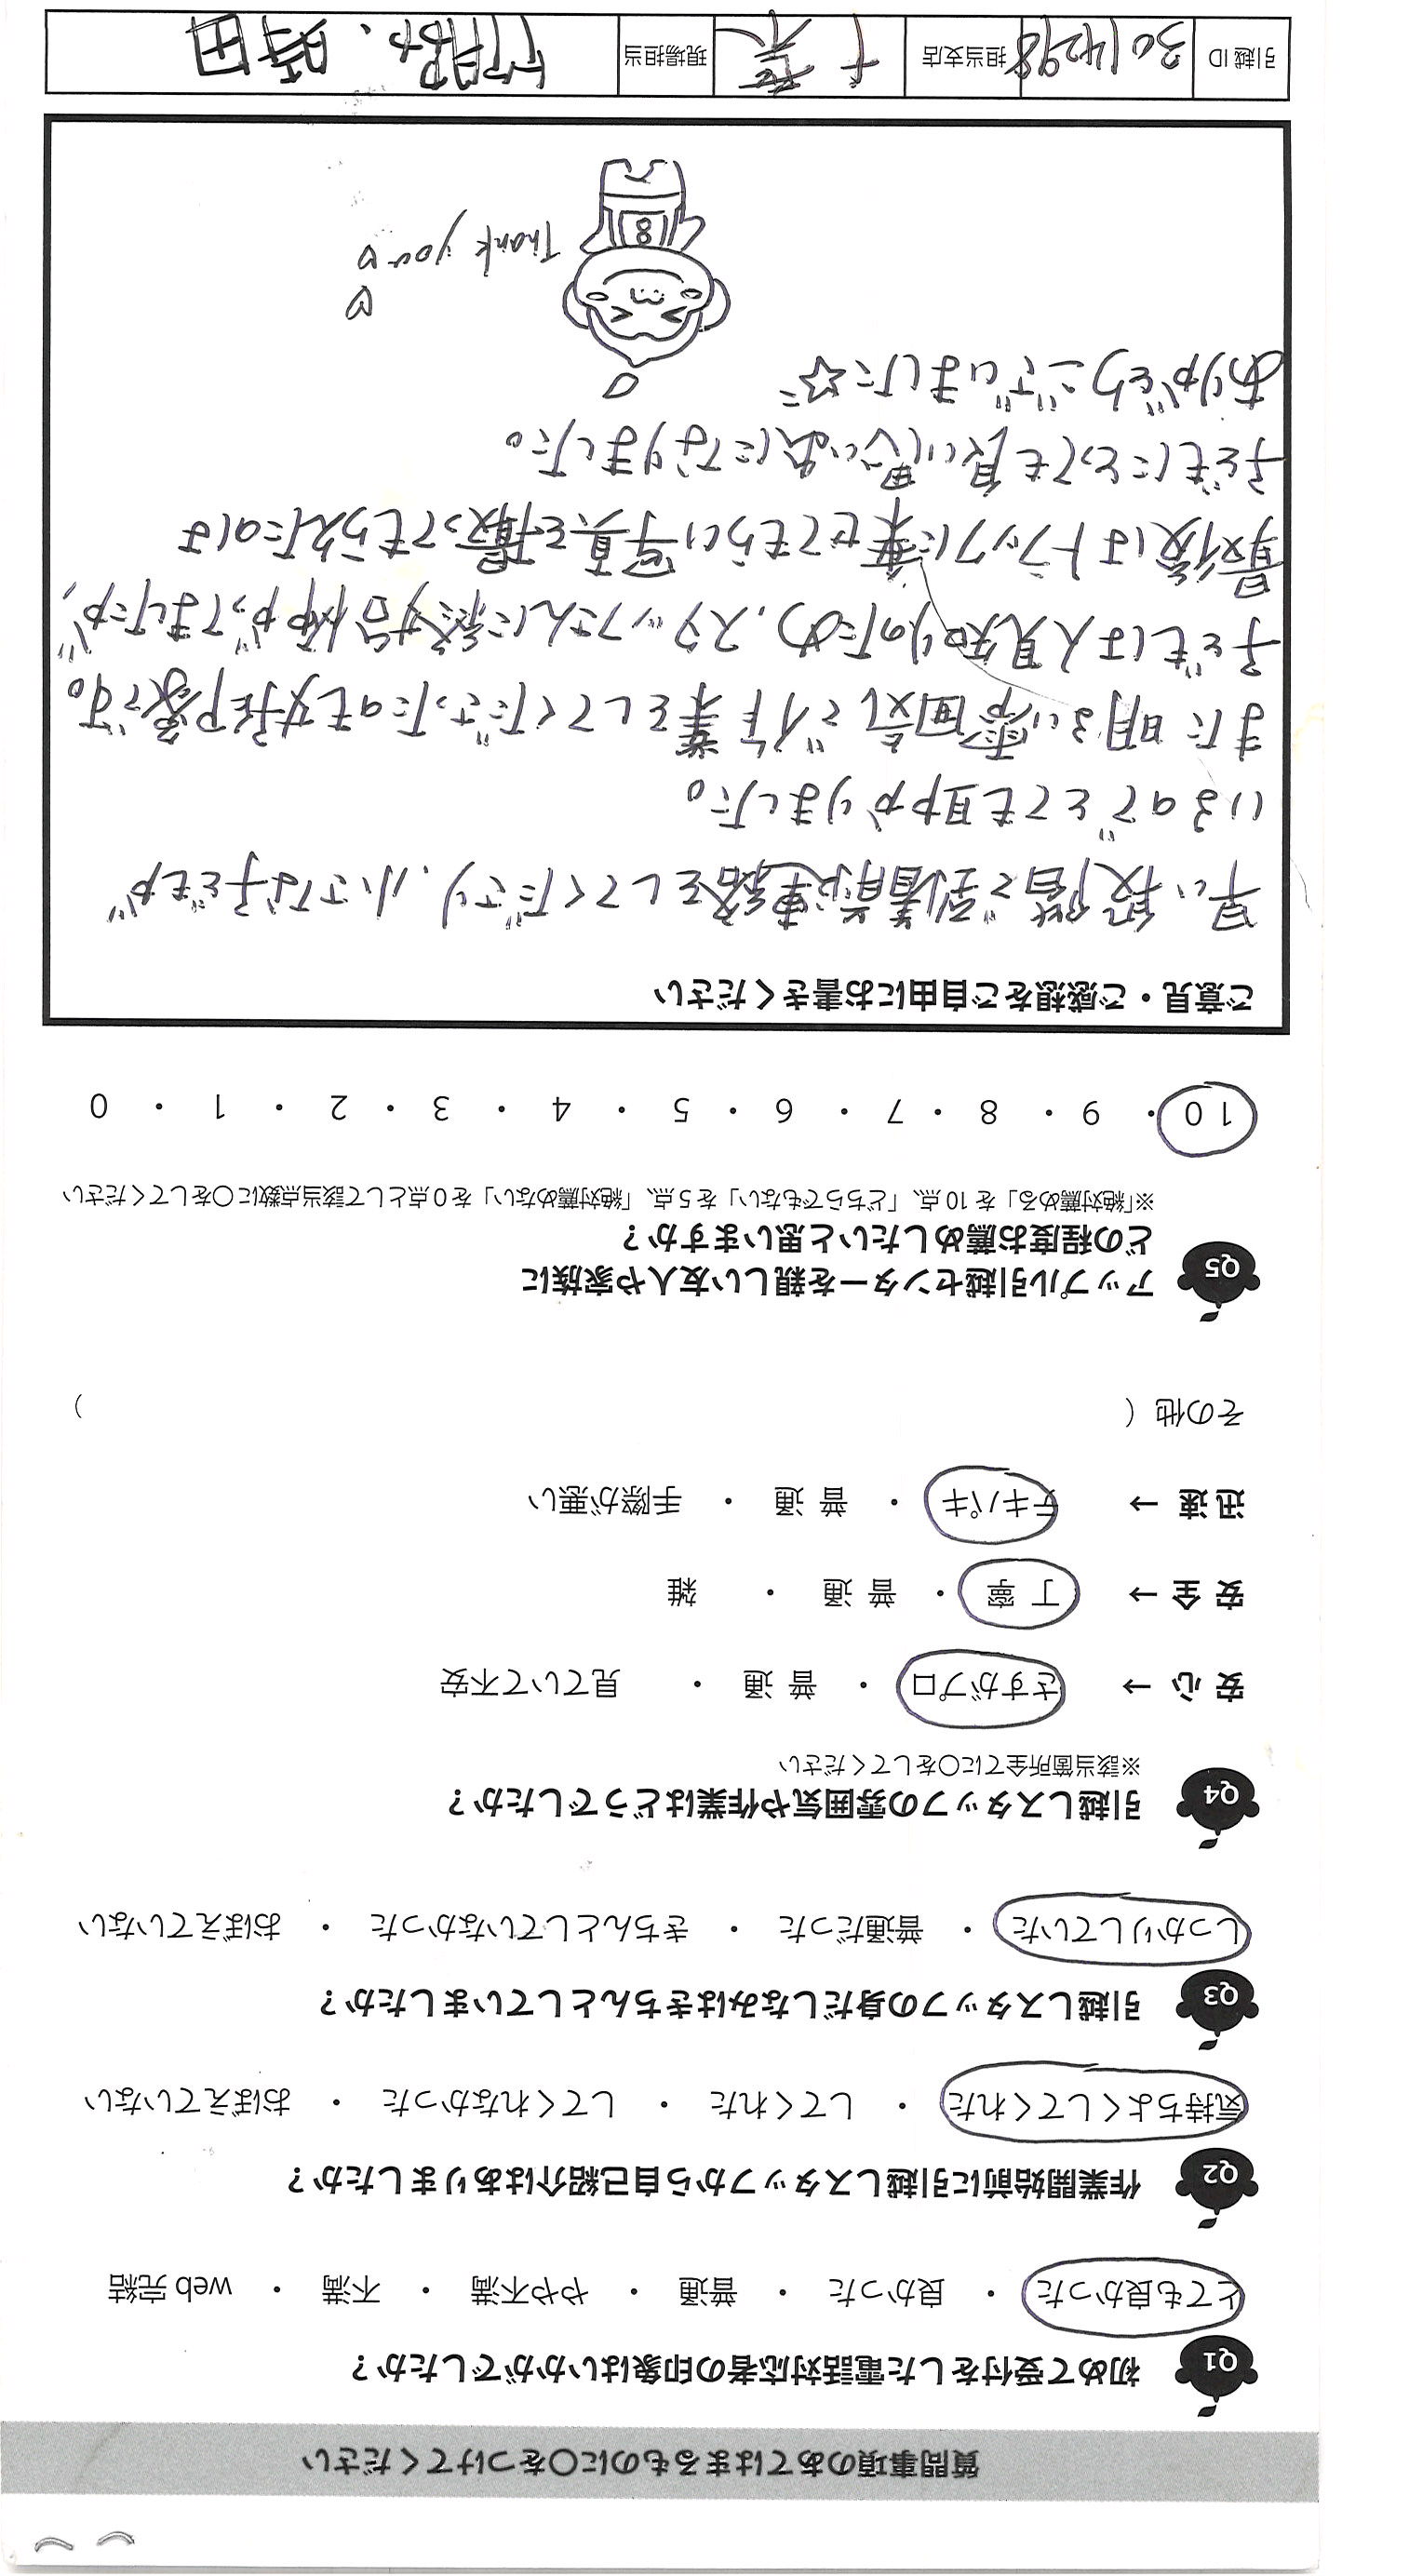 質問事項のあてはまるものに〇をつけてください
Q1 初めて受付をした電話対応者の印象はいかがでしたか？
とても良かった ・ 良かった ・ 普通 ・ やや不満 ・ 不満 ・ web 完結
Q2 作業開始前に引越しスタッフから自己紹介はありましたか？
気持ちよくしてくれた ・ してくれた ・ してくれなかった ・ おぼえていない
Q3 引越しスタッフの身だしなみはきちんとしていましたか？
しっかりしていた ・ 普通だった ・ きちんとしていなかった ・ おぼえていない
Q4 引越しスタッフの雰囲気や作業はどうでしたか？
※該当箇所全てに〇をしてください
安 心 → さすがプロ ・ 普 通 ・ 見ていて不安
安 全 → 丁 寧 ・ 普 通 ・ 雑
迅 速 → テキパキ ・ 普 通 ・ 手際が悪い
その他（ ）
Q5 アップル引越センターを親しい友人や家族に
どの程度お薦めしたいと思いますか？
※「絶対薦める」を 10 点、「どちらでもない」を 5 点、「絶対薦めない」を 0 点として該当点数に〇をしてください
10 ・ 9 ・ 8 ・ 7 ・ 6 ・ 5 ・ 4 ・ 3 ・ 2 ・ 1 ・ 0
ご意見・ご感想をご自由にお書きください
早い段階で到着前連絡をしてくださり、小さな子どもが
いるのでとても助かりました。
また明るい雰囲気で作業をしてくださったのも好印象です。
子どもは人見知りのため、スタッフさんに終始怖がってましたが、
最後はトラックに乗せてもらい写真を撮ってもらえたのは
子どもにとっても良い思い出になりました。
ありがとうございました☆
Thank you♡
8
引越 ID 3014298 担当支店 千葉 現場担当 服部、時田